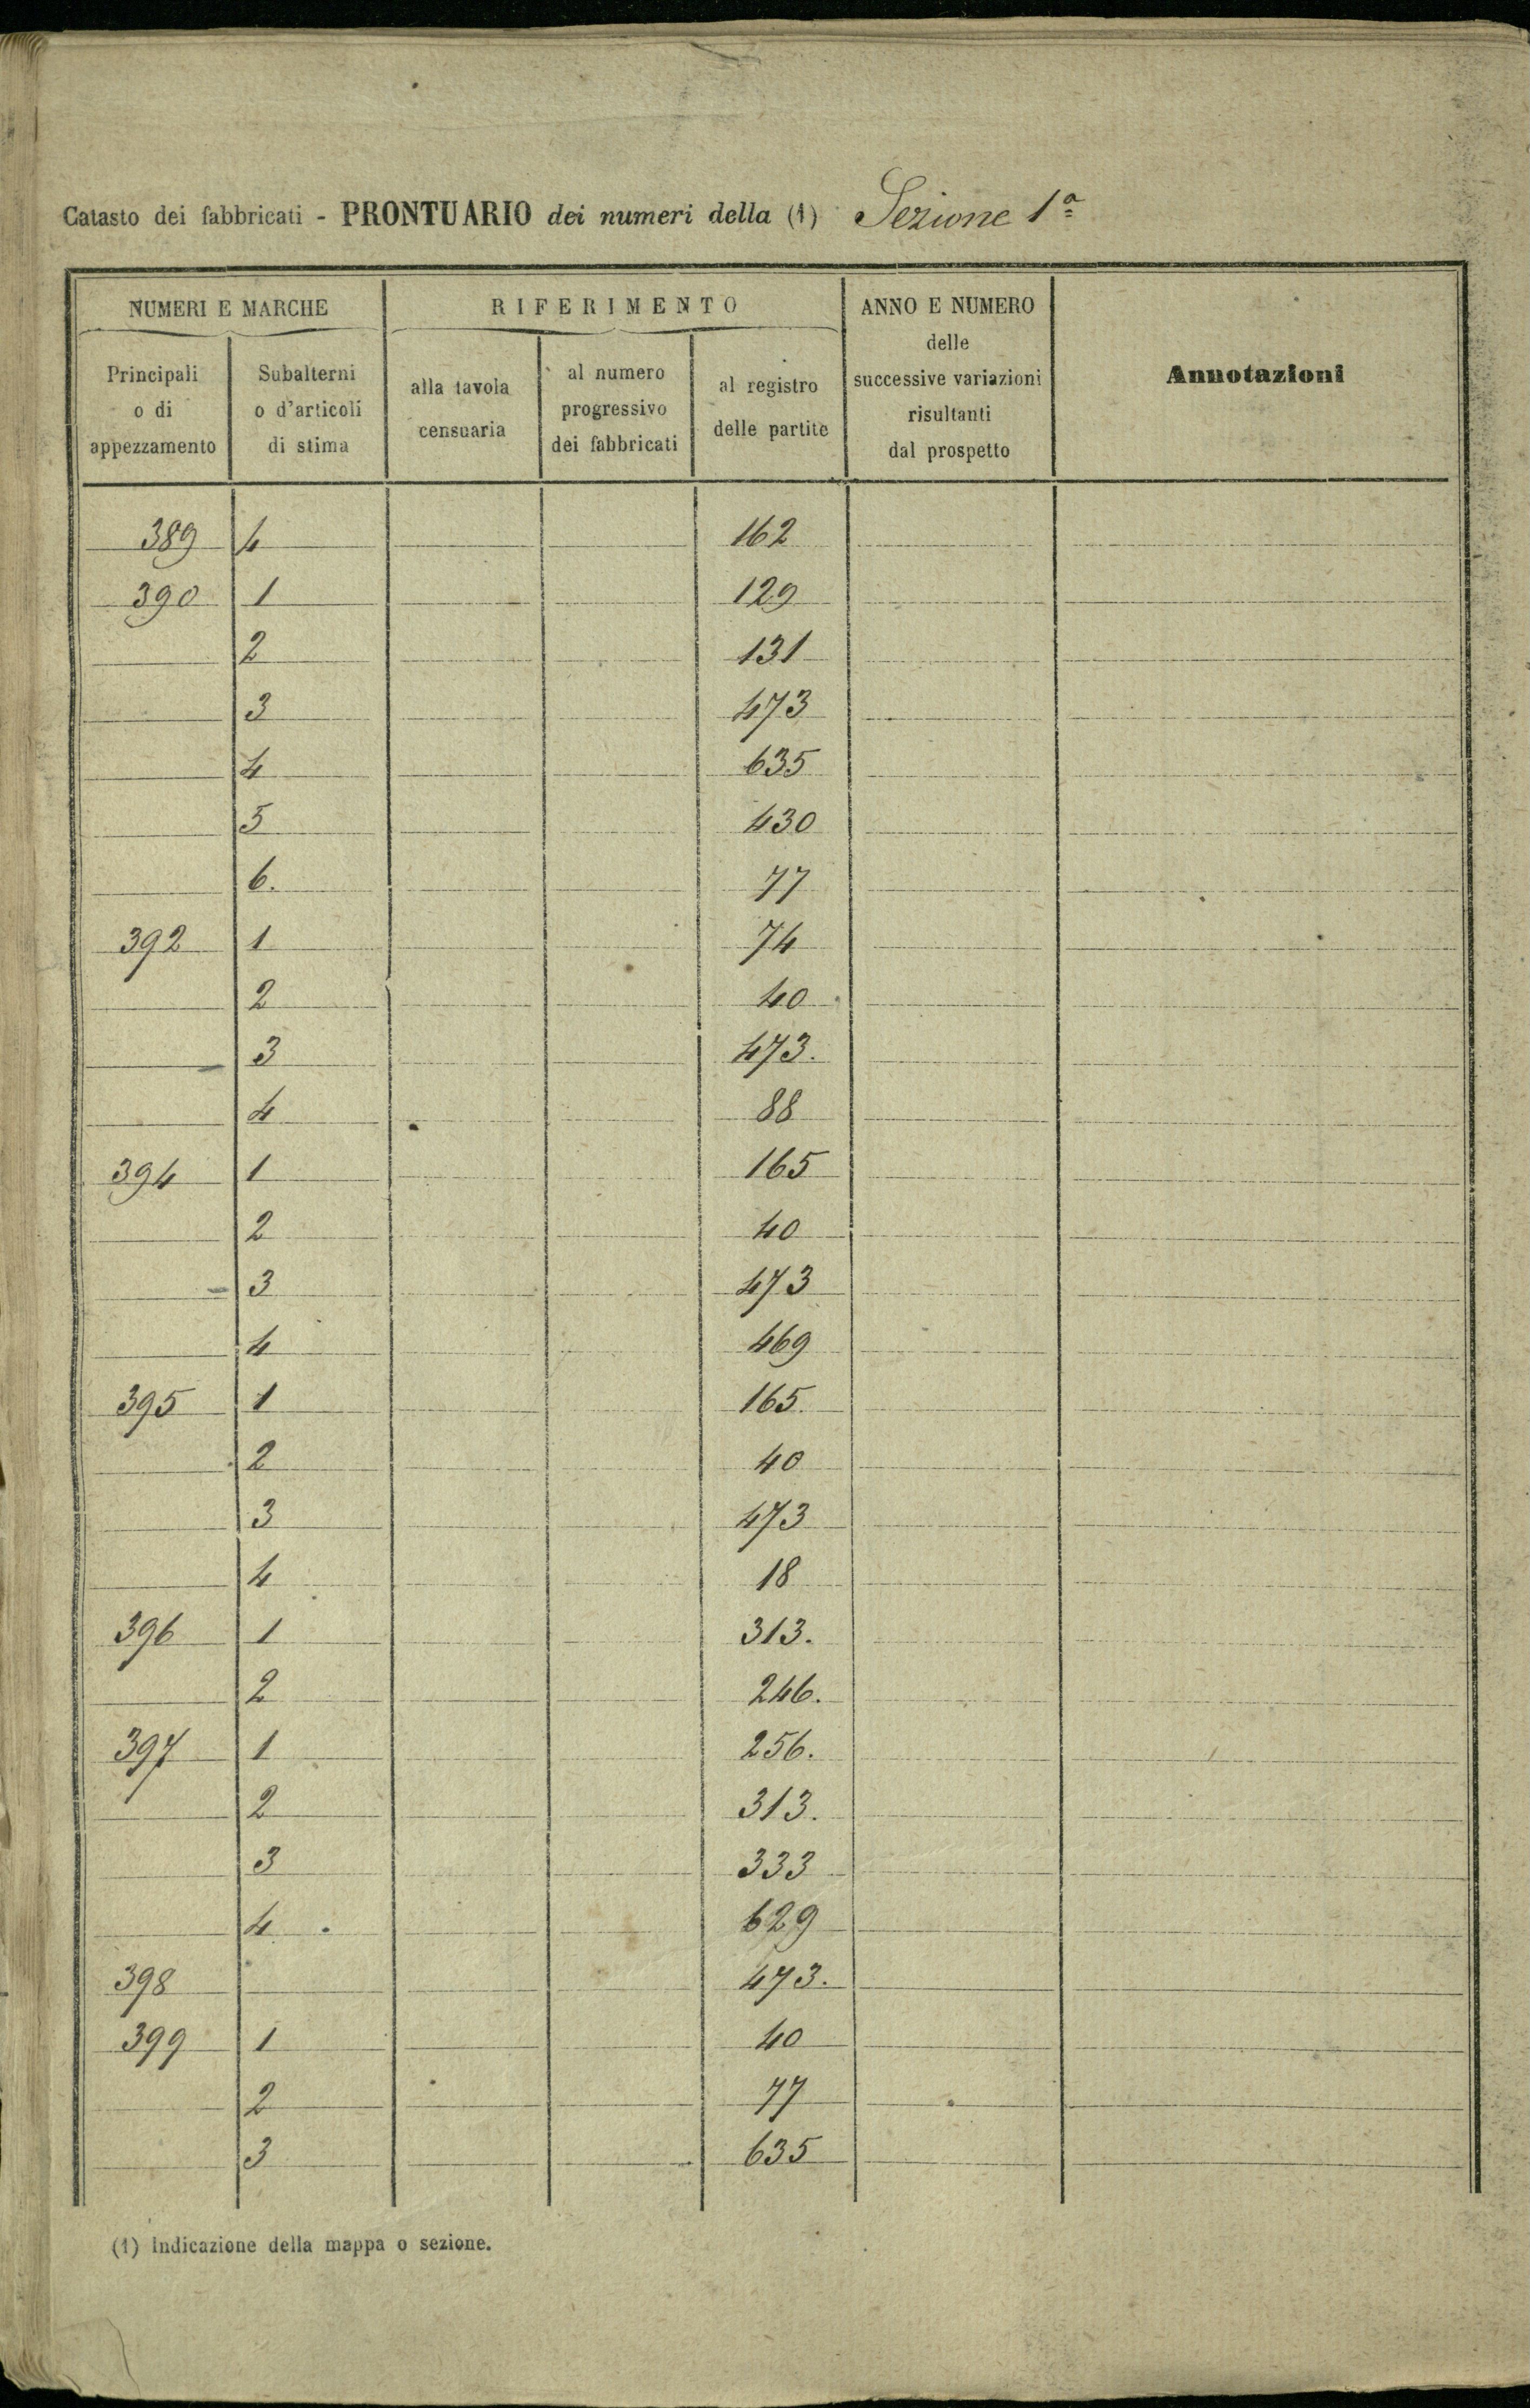 Catasto dei fabbricati - PRONTUARIO dei numeri della (1) Sezione 1ª
NUMERI E MARCHE
RIFERIMENTO
ANNO E NUMERO
delle
successive variazioni
risultanti
dal prospetto
Annotazioni
Principali
o di
appezzamento
Subalterni
o d'articoli
di stima
alla tavola
censuaria
al numero
progressivo
dei fabbricati
al registro
delle partite
389 4 162
390 1 129
2 131
3 473
4 635
5 430
6. 77
392 1 74
2 40
3 473.
4 88
394 1 165
2 40
3 473
4 469
395 1 165.
2 40
3 473
4 18
396 1 313.
2 246.
397 1 256.
2 313.
3 333
4 629
398 473.
399 1 40
2 77
3 635
(1) Indicazione della mappa o sezione.